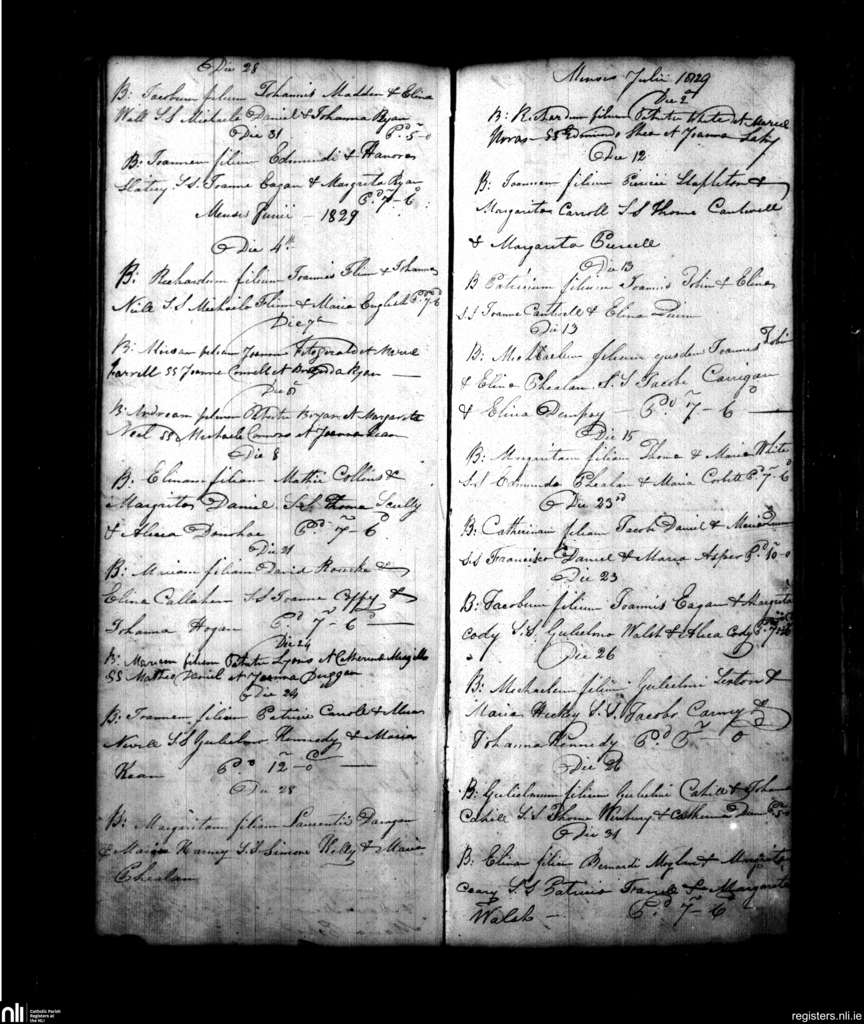 Die 28
B: Jacobum filium Johannis Madden & Elina
Wall S.S Michaele Daniel & Johanna Ryan
Die 31 Pd 5-0
B: Joannem filium Edmundi & Hanora
Slatery S.S. Joanne Eagan & Margrita Ryan
Pd 7-6
Mensis Junii - 1829
Die 4th
B: Richardum filium Joannis Flinn & Johanna
Neill S.S Michaele Flinn & Maria English Pd 7-6
Die 7a
B: filiam Joannis Fitzgerald et Marie
Farrell SS Joanne Connell et Brigida Ryan
Die 8
B: Andream filium Patritii Bryan et Margarita
Neal SS Michaele et Joanna Kean
Die 8
B: Elinam filiam Mathei Collins &
Margritas Daniel S.S. Thoma Scully
& Alicea Donohoe Pd 7-6
Die 21
B: Mariam filiam David Rourke &
Elina Callahan S.S Joanne &
Johanna Hogan Pd 7-6
Die 24
B: Mariam filiam Patritii Lyons et Catherina
SS Mattheo Daniel et Joanna Duggan
Die 24
B: Joannem filium Patricii Carroll & Alicea
Nevill S.S Gulielmo Kennedy & Maria
Kean Pd 12-0
Die 28
B: Margaritam filiam Laurentii
& Maria Harney S.S Simone Kelly & Maria
Phealan
Mensis Julii 1829
Die 2a
B: Richardum filium Patritii White et Marie
SS Edmundo Shea et Joanna
Die 12
B: Joannem filium Pierii Stapleton &
Margaritas Carroll S.S Thoma Cantwell
& Margarita Purcell
Die 13
B Patricium filium Joannis Tobin & Elinas
S.S Joanne Cantwell & Elina Quinn
Die 13
B: Michaelem filium ejusdem Joannis Tobin
& Elina Phealan. S.S Jacobo Carrigan
& Elina Dempsy - Pd 7-6
Die 15
B: Margaritam filiam Thoma & Maria White
S.S Edmundo Phealan & Maria Corbett Pd 7-6
Die 23rd
B: Catherinam filiam Jacobi Daniel &
S.S Francisco Daniel & Maria Asper Pd 10-0
Die 23
B: Jacobum filium Joannis Eagan & Margrita
Cody S.S. Gulielmo Walsh & Alicea Cody Pd 7-6
Die 26
B: Michaelem filium Gulielmi Sexton &
Maria Hickey S.S. Jacobo Carney &
Johanna Kennedy Pd 5-0
Die 26
B: Gulielmum filium Gulielmi Cahill & Johanna
Cahill S.S Thoma & Catherina Dunn Pd 5-0
Die 31
B: Elina filia Bernardi & Margrita
Ceary S.S Patricio & Margarita
Walsh - Pd 7-6
nli
Catholic Parish
Registers at
the NLI
registers.nli.ie